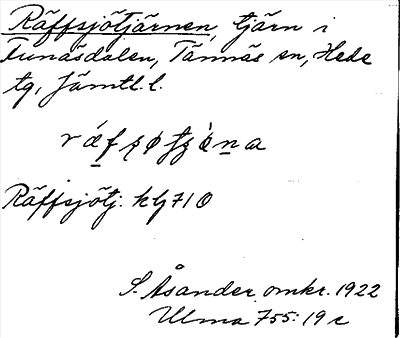 Räffsjötjärnen, tjärn i
Funäsdalen, Tännäs sn, Hede
tg, Jämtl. l.
Räffsjötj. kbl 71 Ö
S. Åsander omkr. 1922
Ulma 755: 19 c